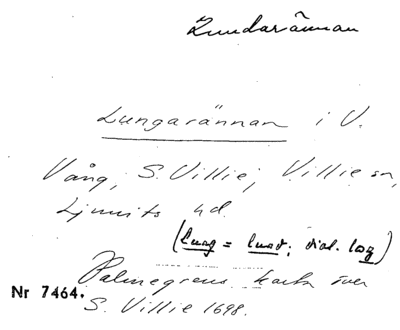 Lundarännan
Lungarännan i V.
Vång, S. Villie; Villie sn,
Ljunits hd.
(lung = lund; dial. log)
Palmegrens karta över
Nr 7464. S. Villie 1698.